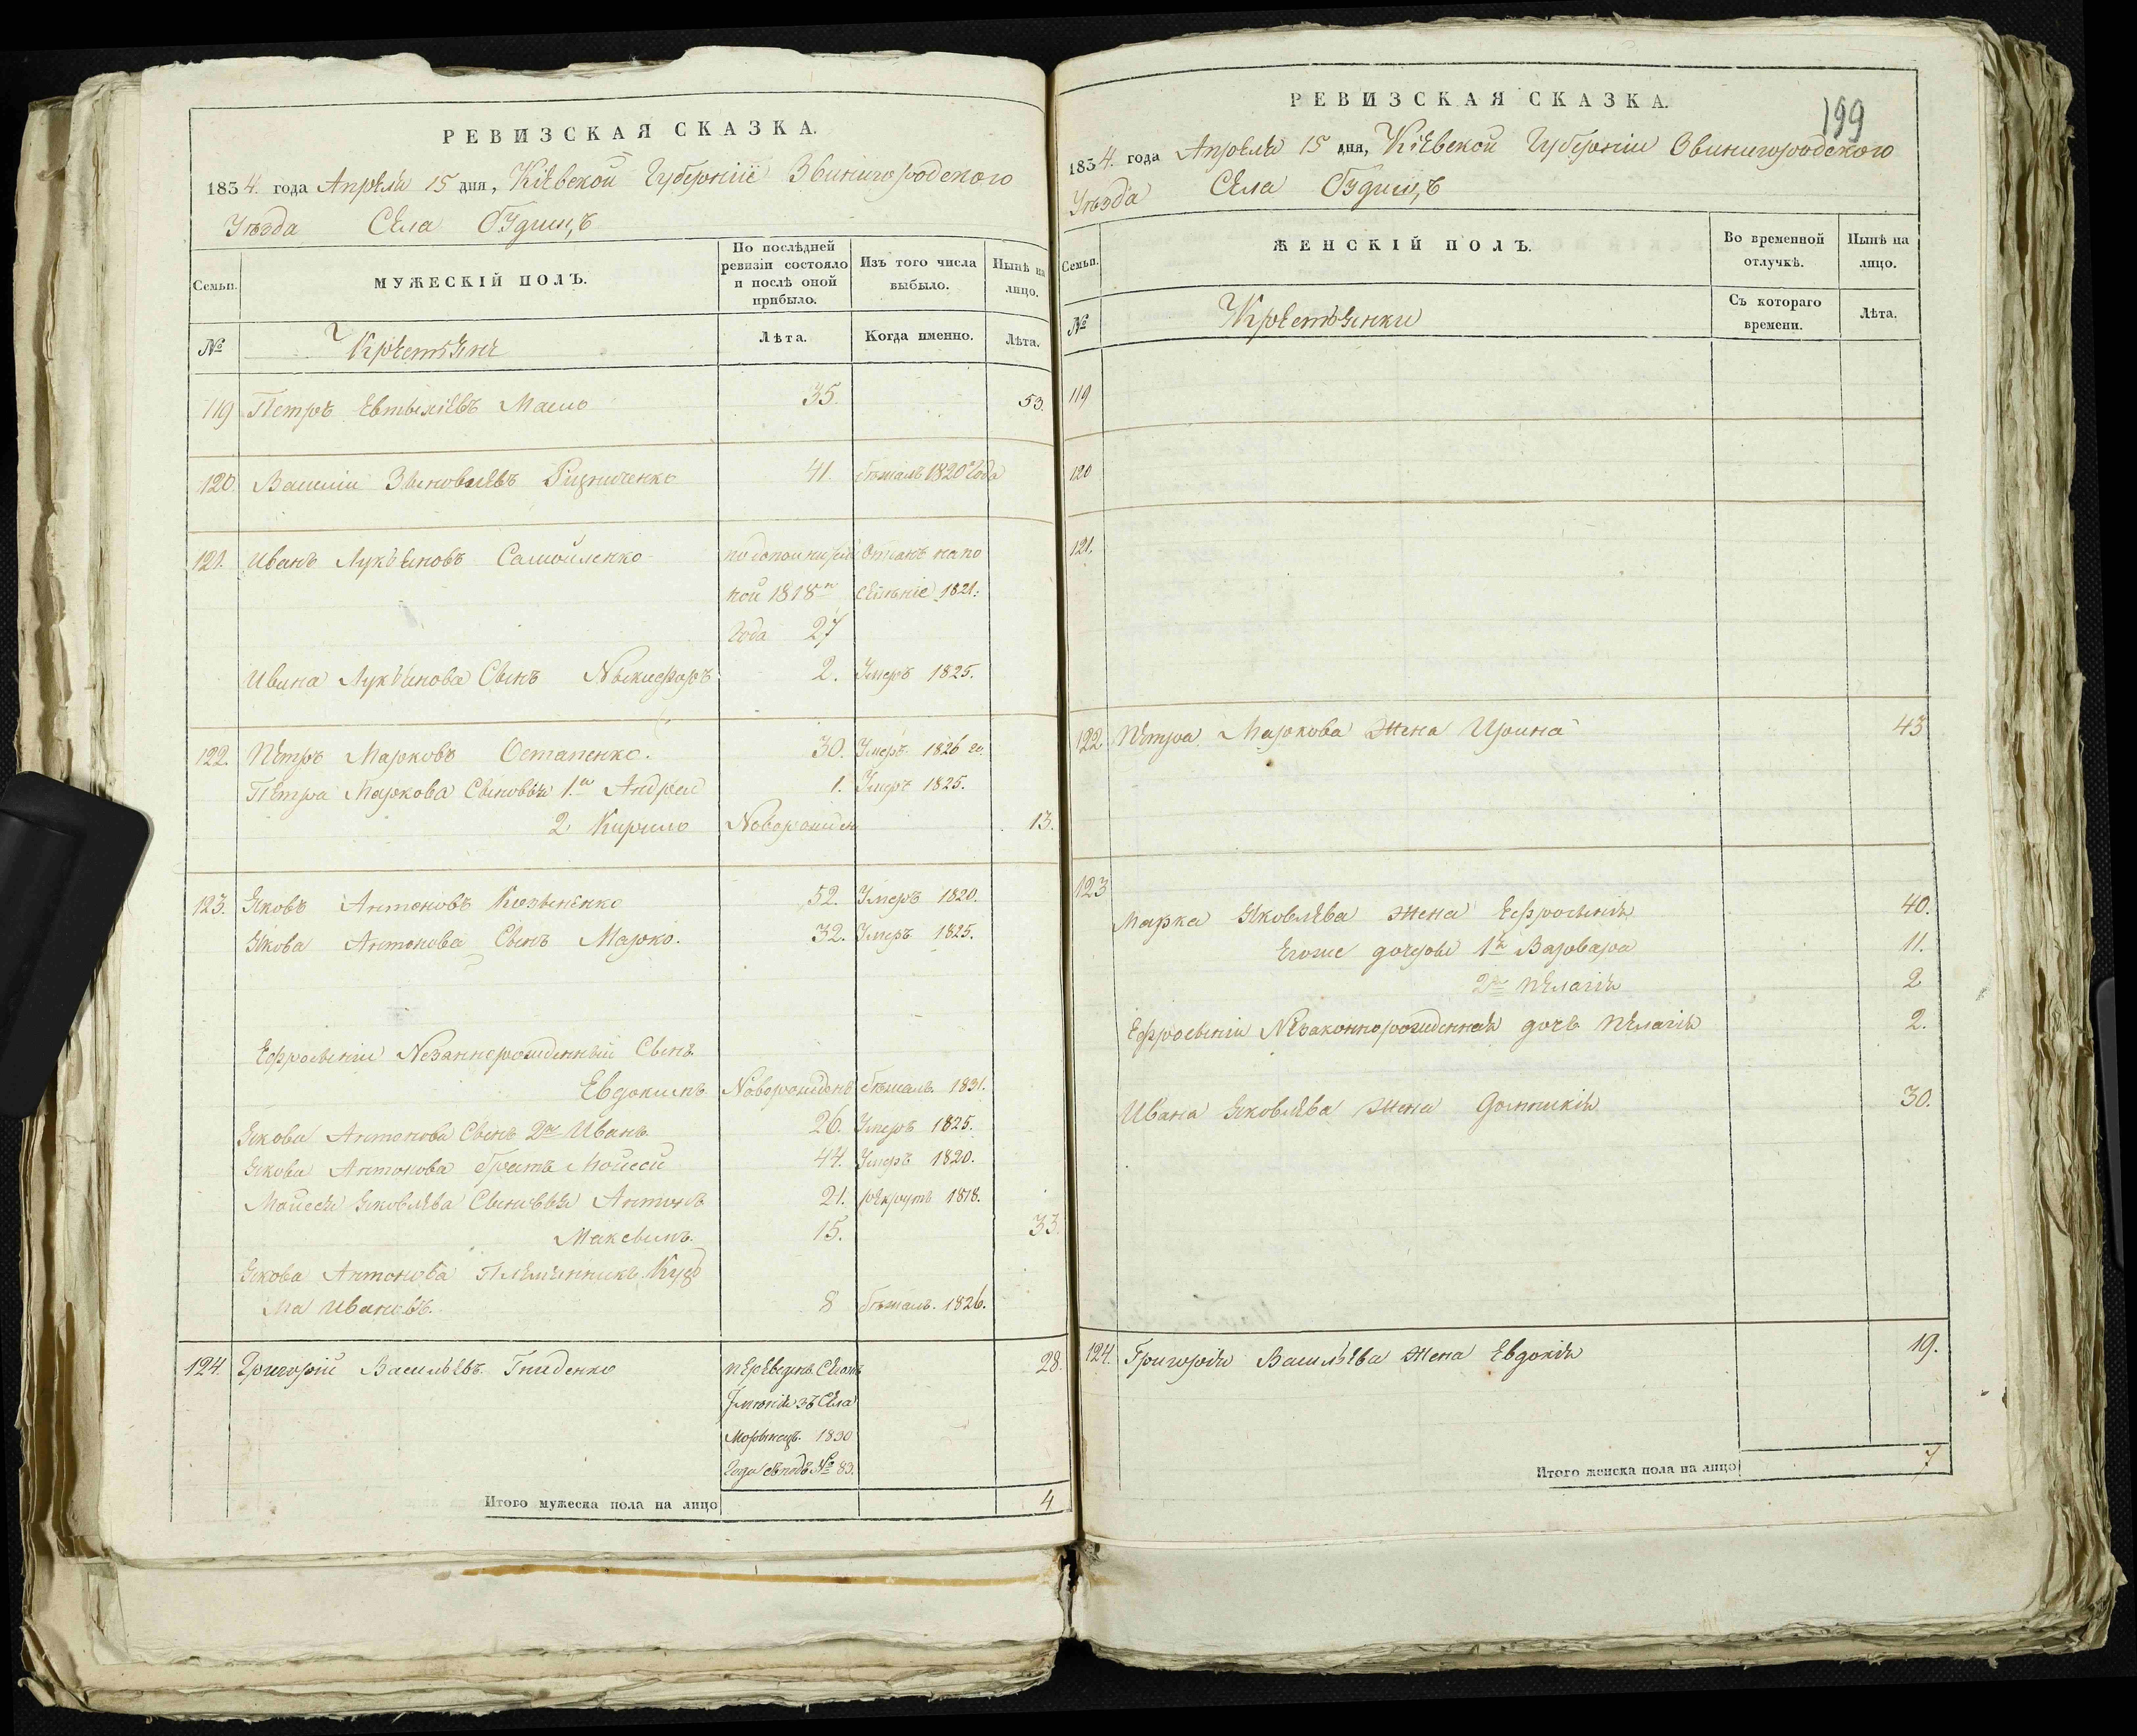 РЕВИЗСКАЯ СКАЗКА.
1834. года Апреля 15 дня, Кіевской Губерніи Звинигородского
Уезда Села Будищъ
Семьи.
МУЖЕСКІЙ ПОЛЪ.
По послѣдней ревизіи состояло и послѣ оной прибыло.
Изъ того числа выбыло.
Нынѣ на лицо.
№
Крестьяне
Лѣта.
Когда именно.
Лѣта.
119 Петръ Масло 35. 53.
120. Василий Зѣновьевъ Ризниченко 41. бѣжалъ 1820 Года
121. Иванъ Лукьяновъ Самойленко Отданъ на по
кой 1818 селѣніе 1821.
Года 27
Ивана Лукьянова Сынъ Никифоръ 2. Умеръ 1825.
122. Петръ Марковъ Остапенко. 30. Умеръ 1826 го.
Петра Маркова Сыновья 1.й Андрей 1. Умеръ 1825.
2 Кирило Новорожден 13.
123. Яковъ Антоновъ 52. Умеръ 1820.
Якова Антонова Сынъ Марко. 32. Умеръ 1825.
Ефросыніи Сынъ
Евдокимъ Новорожденъ бѣжалъ. 1831.
Якова Антонова Сынъ 2й Иванъ 26. Умеръ 1825.
Якова Антонова братъ Мойсей 44. Умеръ 1820.
Мойсея Яковлева Сыновья Антонъ 21. рекрутъ 1818.
Максымъ. 15. 33.
Якова Антонова Племянникъ Кузь
ма Ивановъ. 8 бѣжалъ. 1826.
124. Григорій Васильевъ Гниденко Переведенъ 28.
Имѣнія зъ Села
Морынецъ. 1830
Года съ подъ № 83.
Итого мужеска пола на лицо 4
РЕВИЗСКАЯ СКАЗКА.
199
1834. года Апреля 15 дня, Кіевской Губерніи Звинигородского
Уѣзда Села Будищъ
Семьи.
ЖЕНСКІЙ ПОЛЪ.
Во временной отлучкѣ.
Нынѣ на лицо.
№
Крестьянки
Съ котораго времени.
Лѣта.
119
120
121.
122. Петра Маркова жена Ирина 43
123
Марка Яковлева жена Ефросынія 40.
Егоже дочеры 1я Варвара 11.
2я Пелагія 2
Ефросыніи Незаконнорожденная дочь Пелагія 2.
Ивана Яковлева жена 30.
124. Григорія Васильева жена Евдокія 19.
Итого женска пола на лицо 7